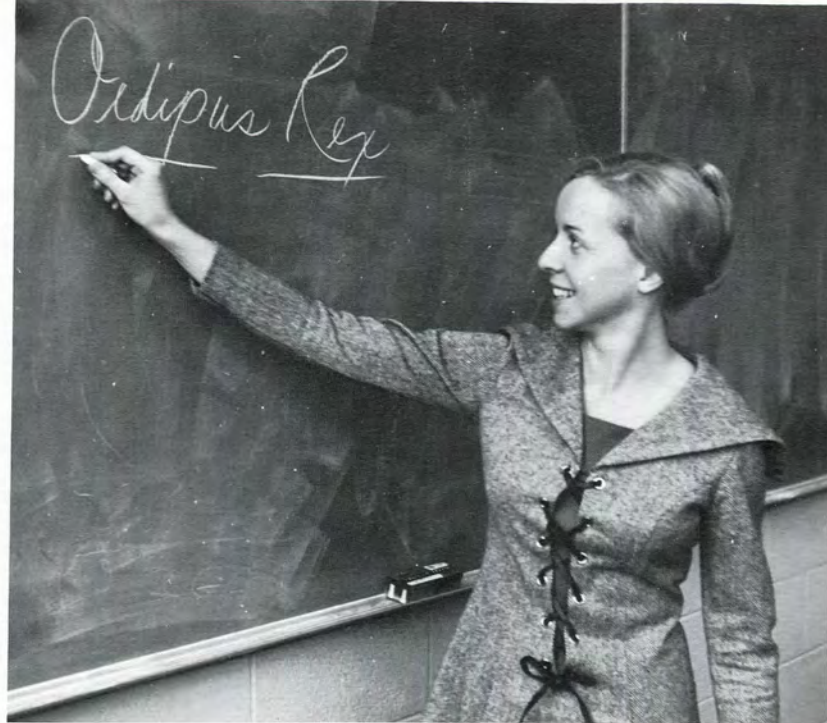 Oedipus Rex